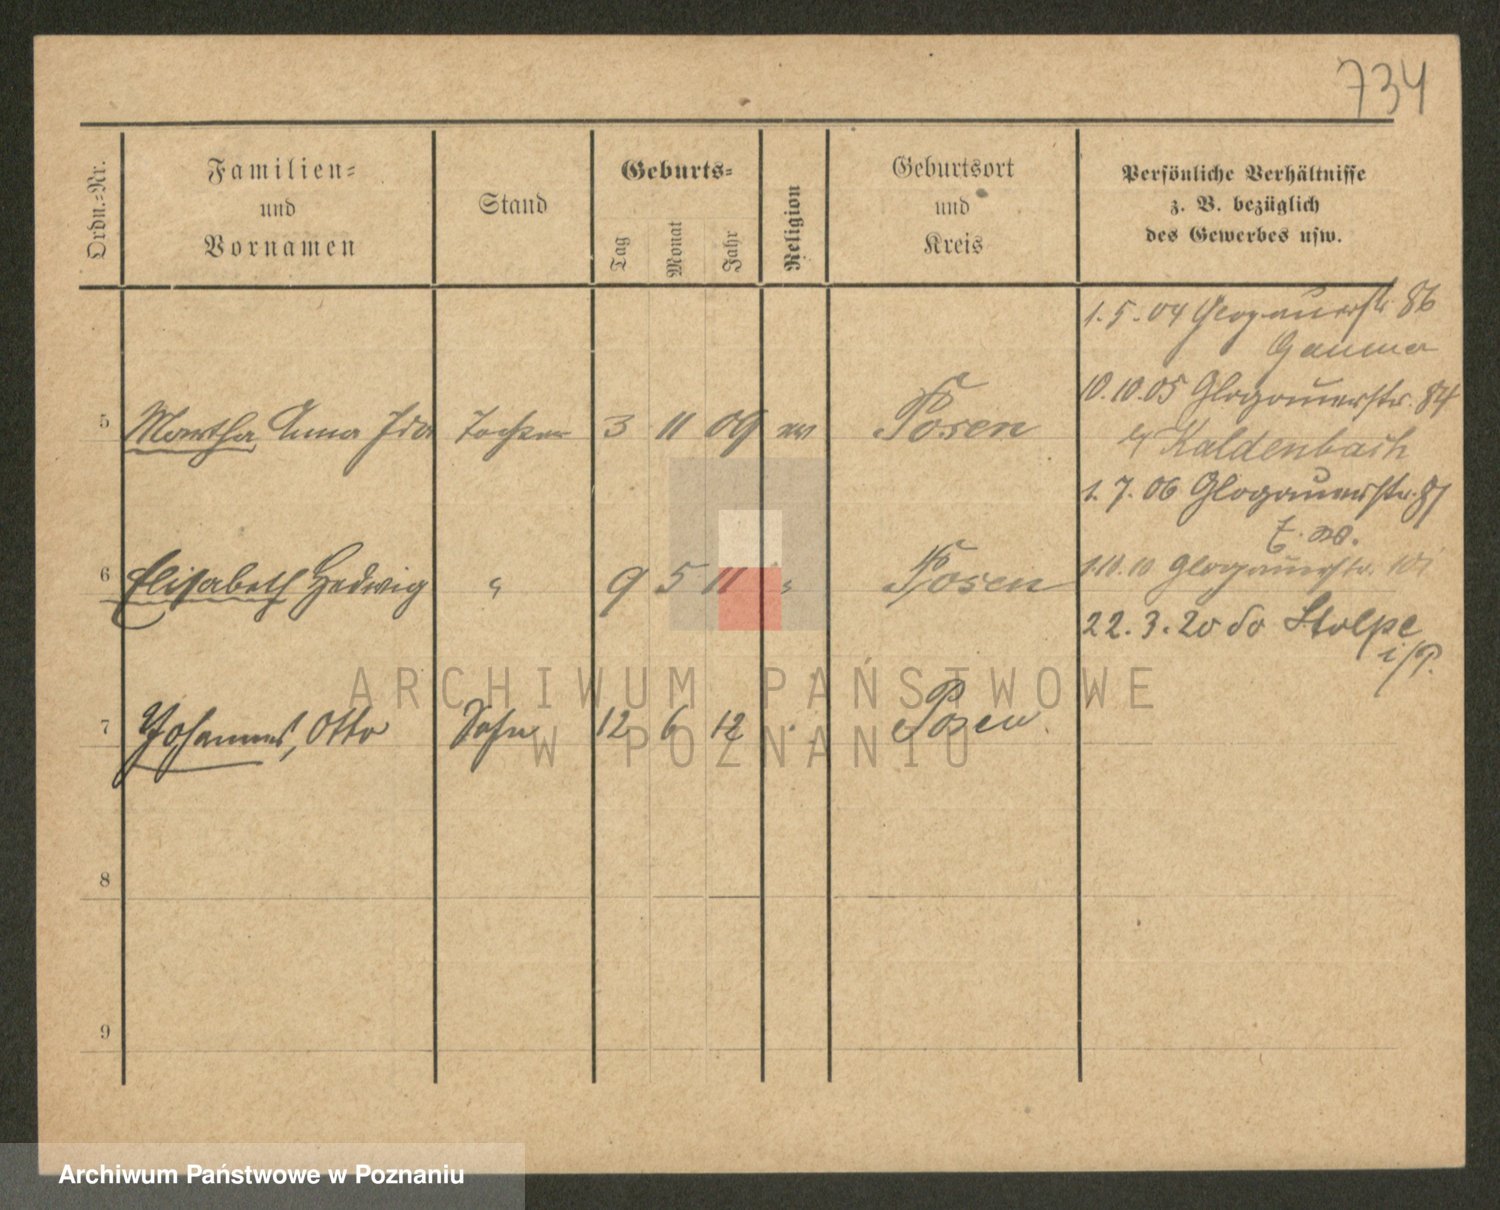 734
Ordn.-Nr.
Familien-
und
Vornamen
Stand
Geburts-
Tag
Monat
Jahr
Religion
Geburtsort
und
Kreis
Persönliche Verhältnisse
z. B. bezüglich
des Gewerbes usw.
1.5.04 Glogauerstr 86
10.10.05 Glogauerstr. 84
b/ Kaldenbach
1.7.06 Glogauerstr. 81
1.10.10 Glogauerstr. 101
22.3.20 do Stolpe
i/P.
5 Martha Anna Ida Tochter 3 11 09 ev Posen
6 Elisabeth Hedwig " 9 5 11 " Posen
7 Johannes, Otto Sohn 12 6 12 " Posen.
8
9
ARCHIWUM PAŃSTWOWE
W POZNANIU
Archiwum Państwowe w Poznaniu